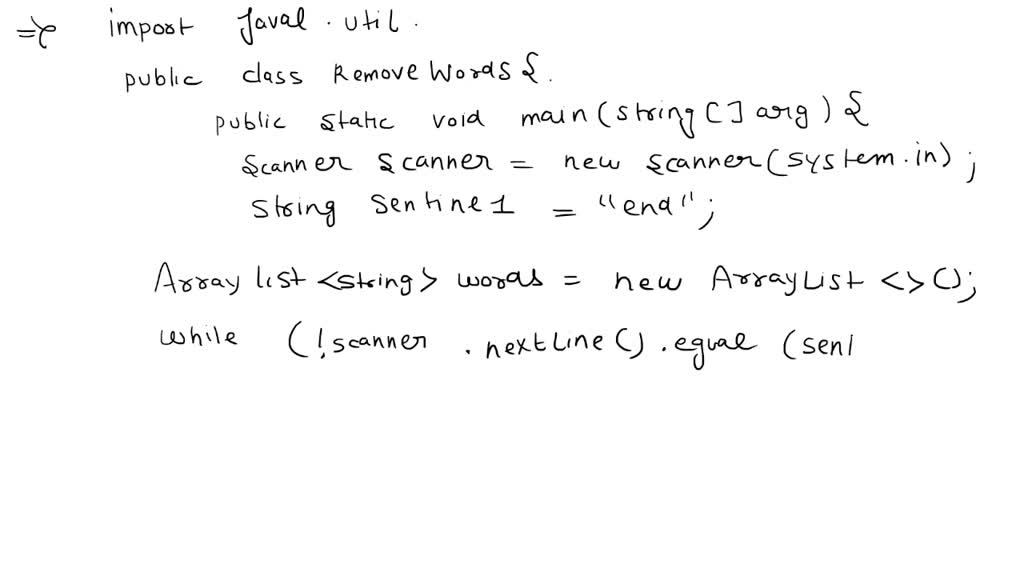 => import Javal . util .
public class RemoveWords {.
public static void main (string [] arg) {
Scanner scanner = new scanner (system.in) ;
string sentine1 = "end" ;
Array list <string> words = new ArrayList <> () ;
while ( ! scanner . nextLine () . equal ( sen